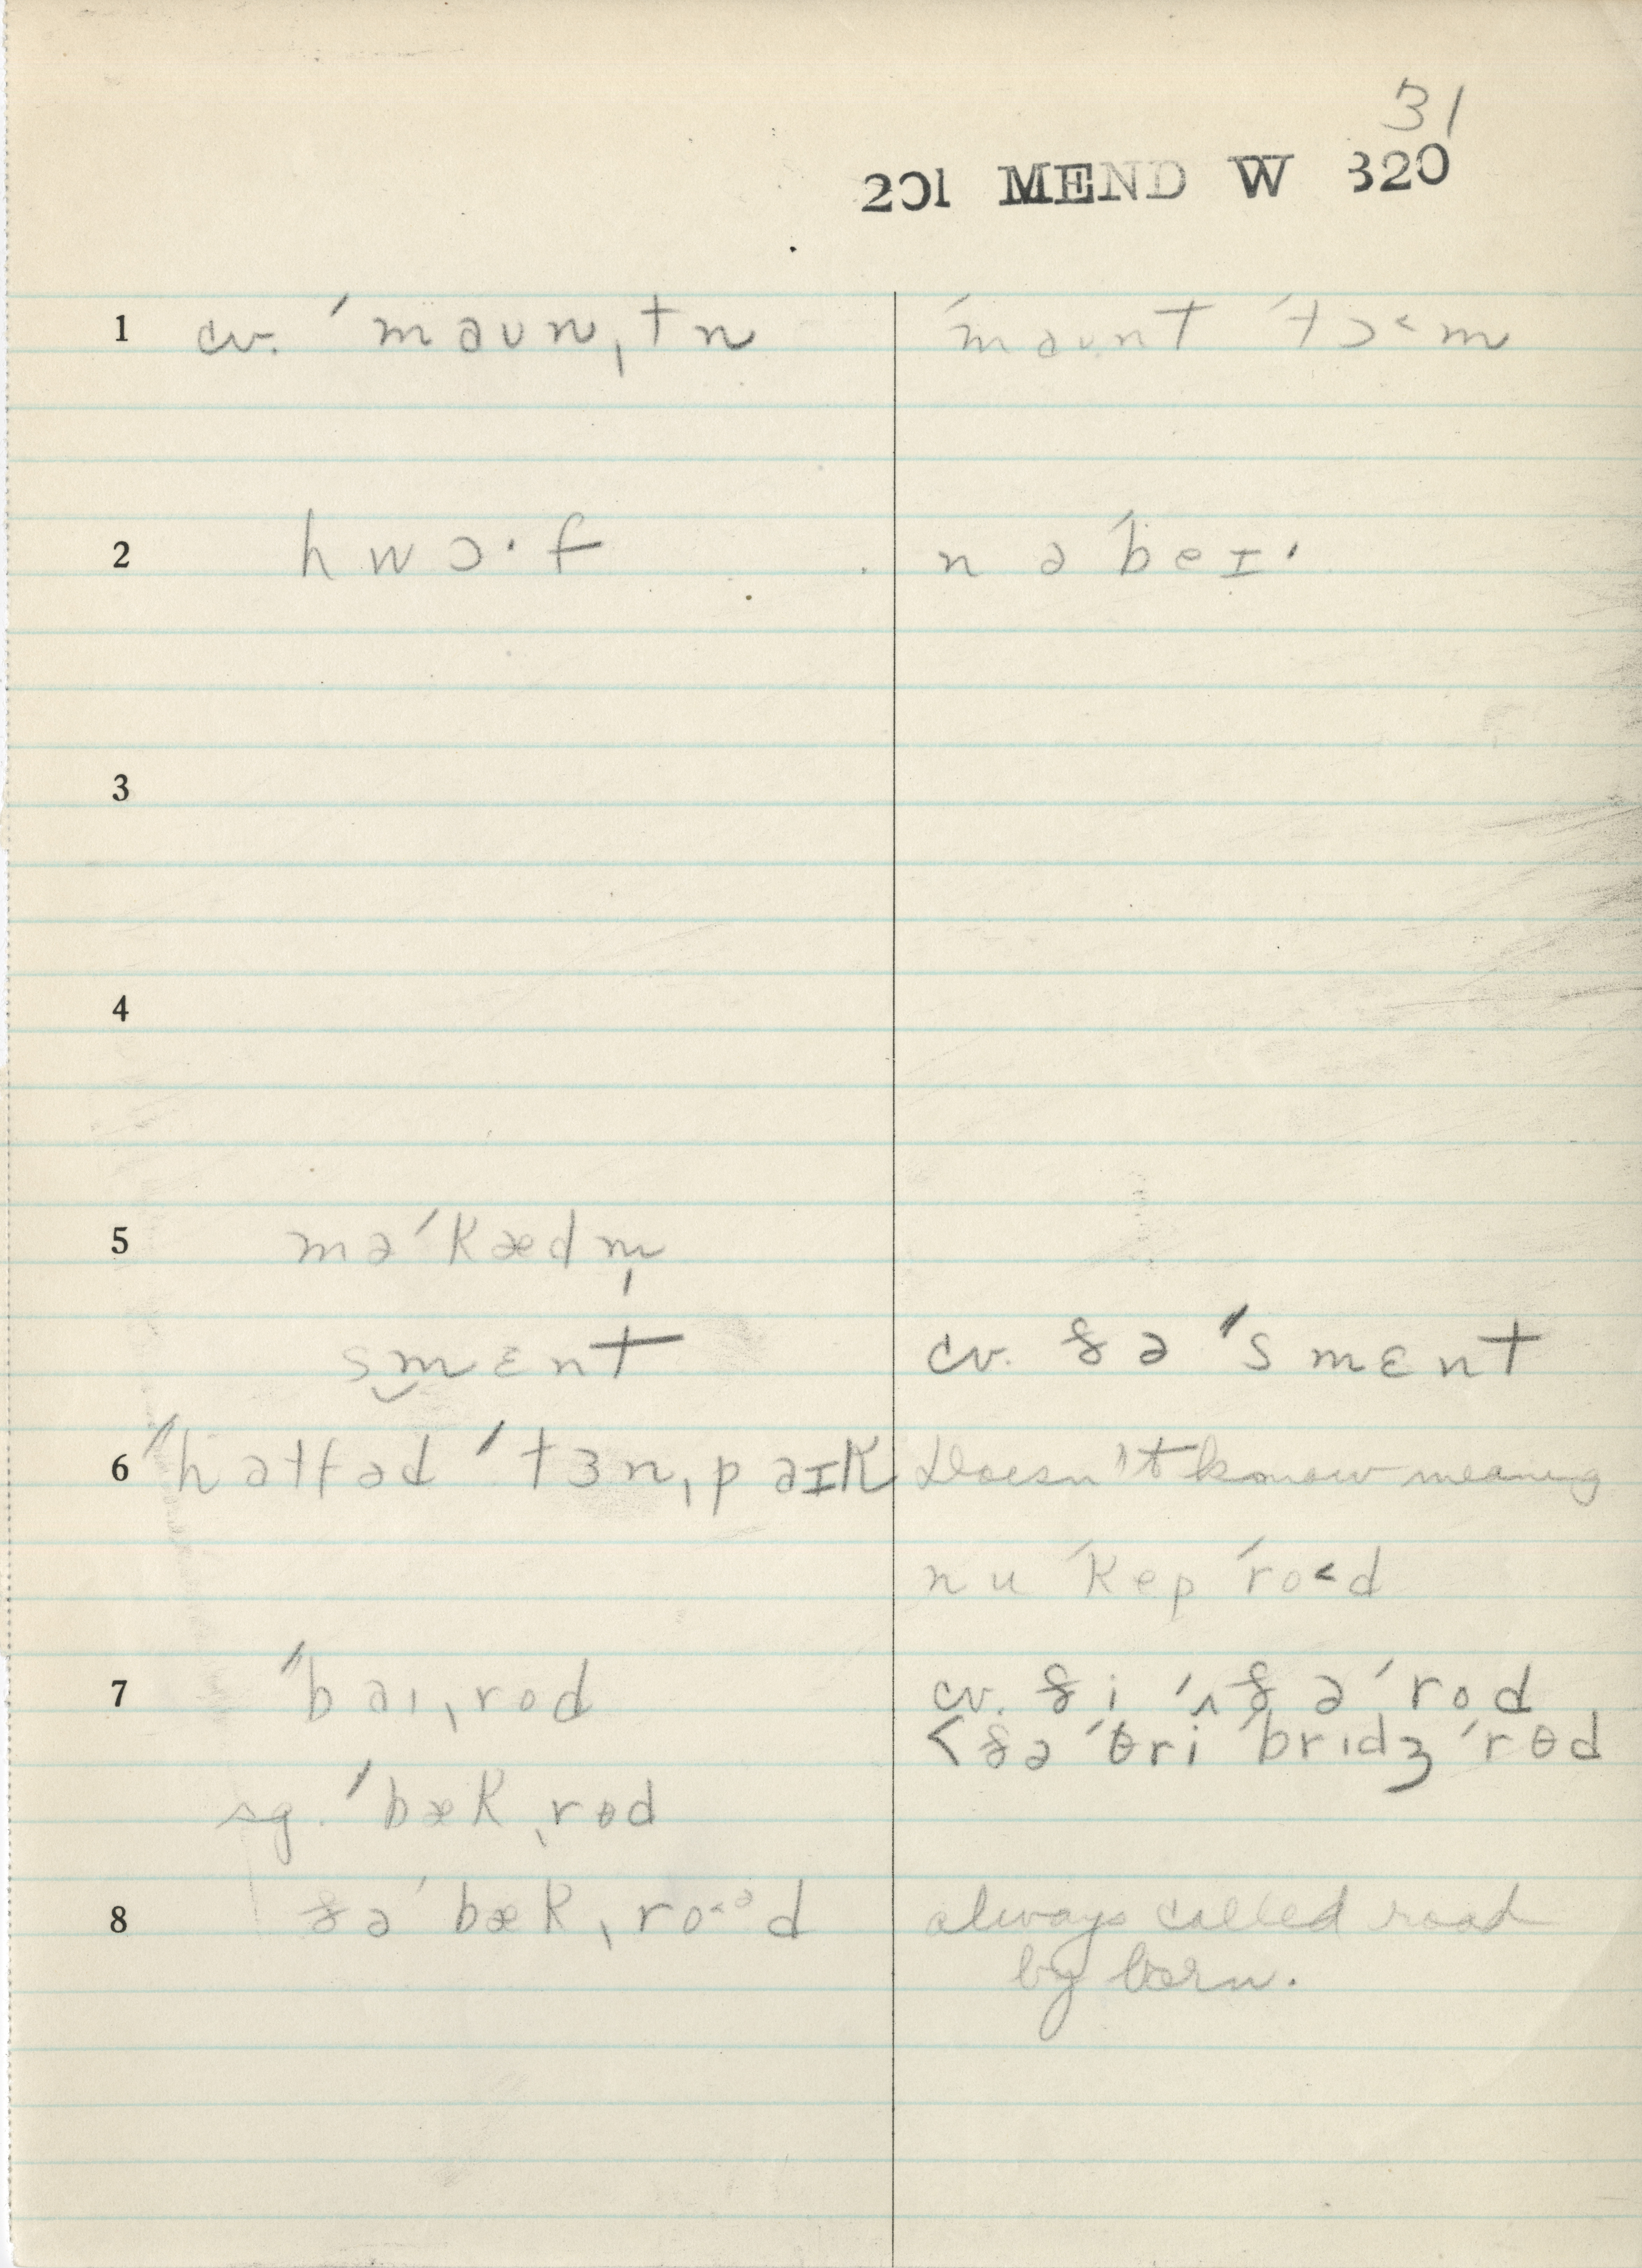 31
201 MEND W 320
1 cv. ˈmaʊnˌtn ˈmaʊnt ˈtɔ˂m
2 hwɔ·f nəˈbeɪ·
3
4
5 məˈkædm̩
smɛnt cv. ðəˈsmɛnt
6 ˈtɜnˌpəɪk Doesn't know meaning
nu ˈkep ˈro˂d
7 ˈbaɪˌrod cv. ði ˈʌðə ˈrod
< ðə ˈθri ˈbrɪdʒ ˈrɵd
sg. ˈbækˌrɵd
8 ðə ˈbækˌro˂ᵊd always called road
by